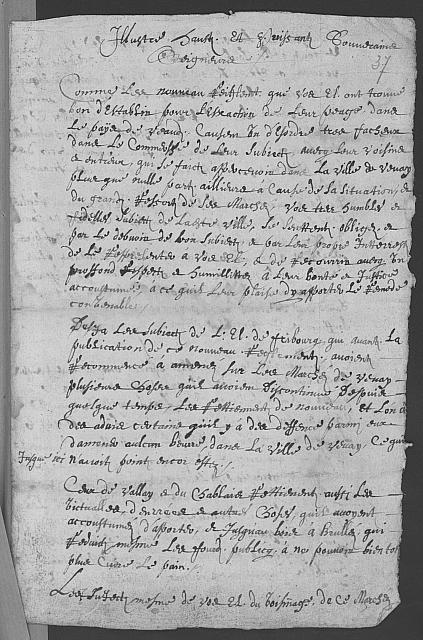 Illustres haults et puissants Souverains
Seigneurs
37
Comme les nouveau que vos El. ont trouvé
bon d'establir pour l'exaction de leur peage dans
le païs de Veaud, causent un desordre tres fascheux
dans le Commerse de leur subiects avecq leur voisins
qui se faict appercevoir dans la ville de Vevay
plus que nulle part ailliers a cause de sa situation, et
du grand de ses Marchés, vos tres humbles et
fidelles subiets de laditte ville, se sentent obliges, et
par le debvoir de bon subiets, et par leur propre Interrest
de le a vos El. et de recourir avecq un
proffond respect et humillitte a leur bonté et Justice
accoustumée, a ce quil leur plaise d'y apporter le remede
convenable.
Desja les subiects de L.El. de fribourg, qui avant la
publication de ce nouveau avoient
recommencé à amener sur les Marchés de Vevay
plusieurs choses quil avoient discontinué despuis
quelque temps, les retiennent de nouveau, et lon a
des advis certains quil y a des deffence parmi eux
d'amener aulcun beurre dans la ville de Vevay, ce qui
Jusque ici n'avoit point encor esté.
Ceux de Vallay et du Chablais retienent aussi les
victuallies, et autres choses, quil avoyent
accoustumé d'apporter, et Jusquau bois à brusler, qui
reduict mesme les fours publicq à ne pouvoir bien tot
plus cuire le pain.
Les subiects mesme de vos El. du voisinage, de ce Marché